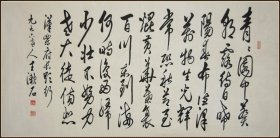 青青園中葵
朝露待日晞
陽春布德澤
萬物生光輝
常恐秋節至
焜黃華葉衰
百川東到海
何時復西歸
少壯不努力
老大徒傷悲
漢樂府長歌行